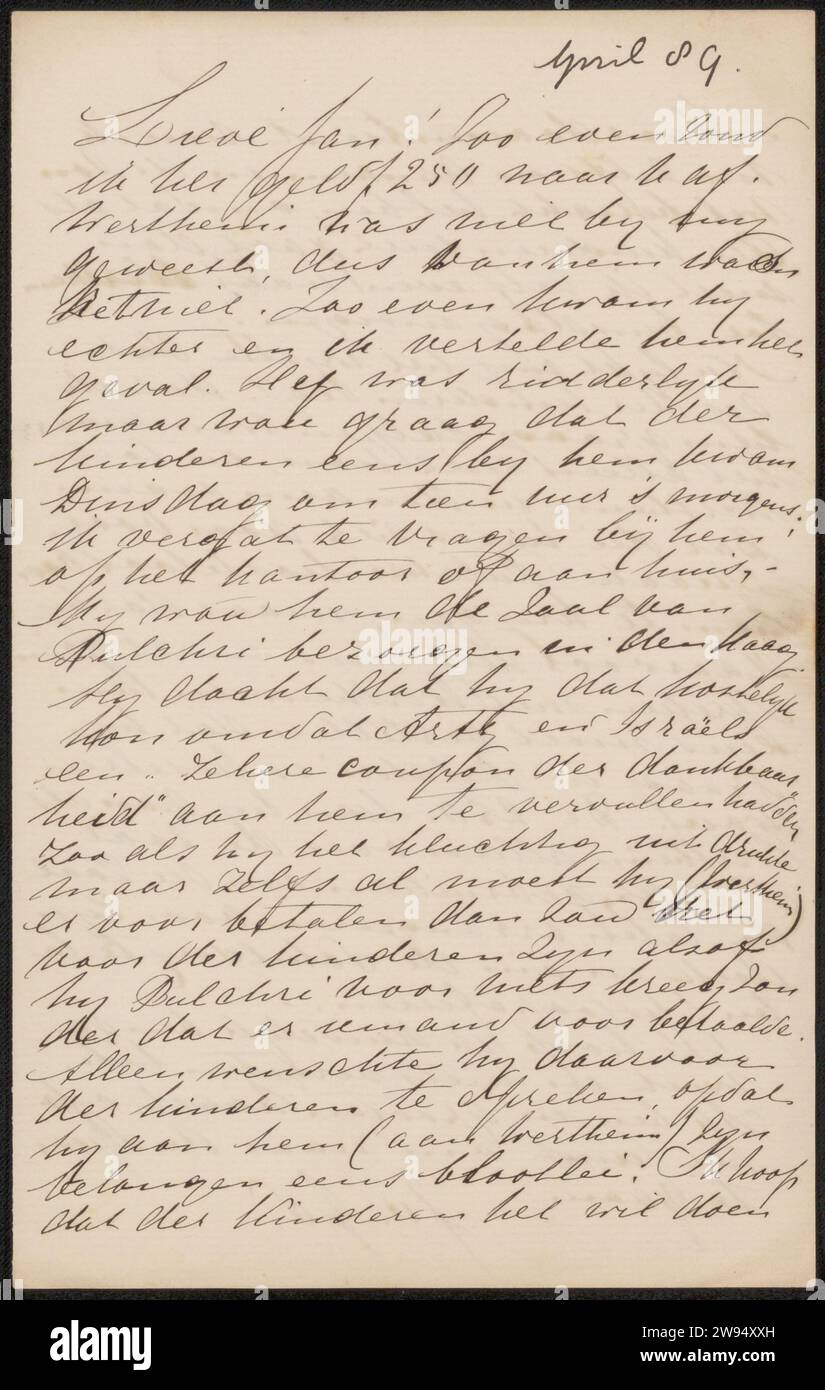 April 89.
Lieve Jan! Zoo even zond
ik het geld f 250 naar h af.
Wertheim was niet by my
geweest, dus van hem was
het niet. Zoo even kwam hy
echter en ik vertelde hem het
geval. Hy was ridderlyk
maar wou graag dat der
kinderen eens by hem kwam
Dinsdag om tien uur 's morgens.
ik vergat te vragen bij hem
op het kantoor of aan huis,-
Hy wou hem de Zaal van
Pulchri bezorgen in den Haag,
Hy dacht dat hy dat kostelyk
kon omdat Artz en Israëls
een „zekere coupon der dankbaar
heid" aan hem te vervullen hadden
zoo als hy het kluchtig uit drukte
maar zelfs al moest hy (Wertheim)
er voor betalen dan zou het
voor der kinderen zyn alsof
hy Pulchri voor niets kreeg zon
der dat er iemand voor betaalde.
Alleen wenschte hy daarvoor
der kinderen te spreken, opdat
hy aan hem (aan Wertheim) zyn
belangen eens blootlei. Ik hoop
dat der Kinderen het wil doen
alamy
2W94XXH